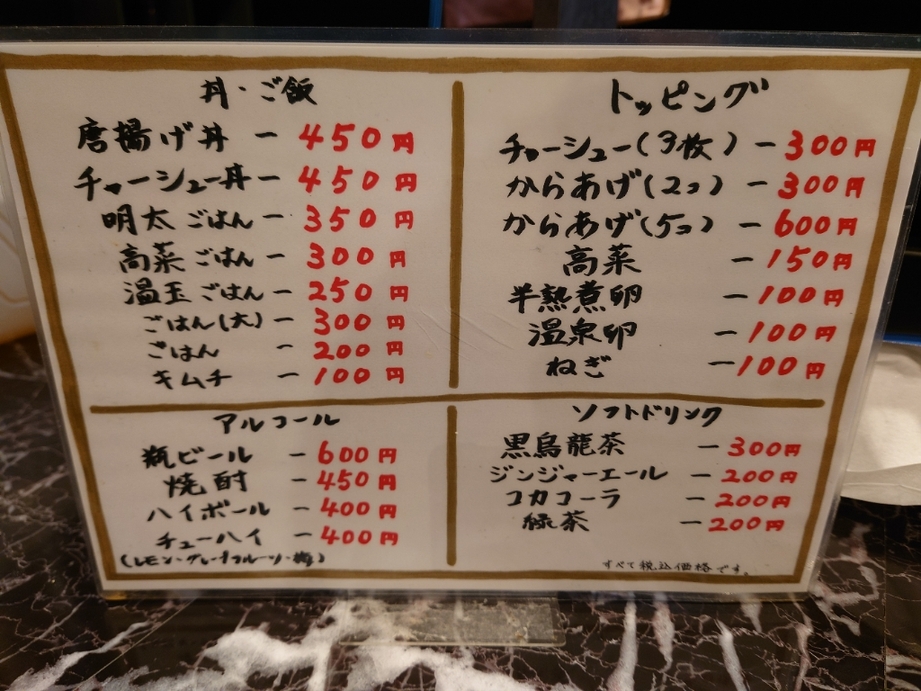 丼・ご飯
唐揚げ丼 ー 450円
チャーシュー丼 ー 450円
明太ごはん ー 350円
高菜ごはん ー 300円
温玉ごはん ー 250円
ごはん(大) ー 300円
ごはん ー 200円
キムチ ー 100円
トッピング
チャーシュー(3枚) ー 300円
からあげ(2コ) ー 300円
からあげ(5コ) ー 600円
高菜 ー 150円
半熟煮卵 ー 100円
温泉卵 ー 100円
ねぎ ー 100円
アルコール
瓶ビール ー 600円
焼酎 ー 450円
ハイボール ー 400円
チューハイ ー 400円
(レモン・グレープフルーツ・梅)
ソフトドリンク
黒烏龍茶 ー 300円
ジンジャーエール ー 200円
コカコーラ ー 200円
緑茶 ー 200円
すべて税込価格です。